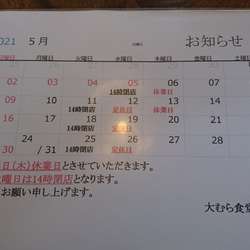 2021 5月 お知らせ
月曜日 火曜日 水曜日 木曜日 金曜日
02 03 04 05 06 07
14時閉店 休業日
09 10 11 12 13
14時閉店 定休日 休業日
16 17 18 19 20 21
14時閉店 定休日
24 25 26 27 28
14時閉店 定休日
30 / 31
日(木)休業日とさせていただきます。
曜日は14時閉店となります。
お願い申し上げます。
大むら食堂